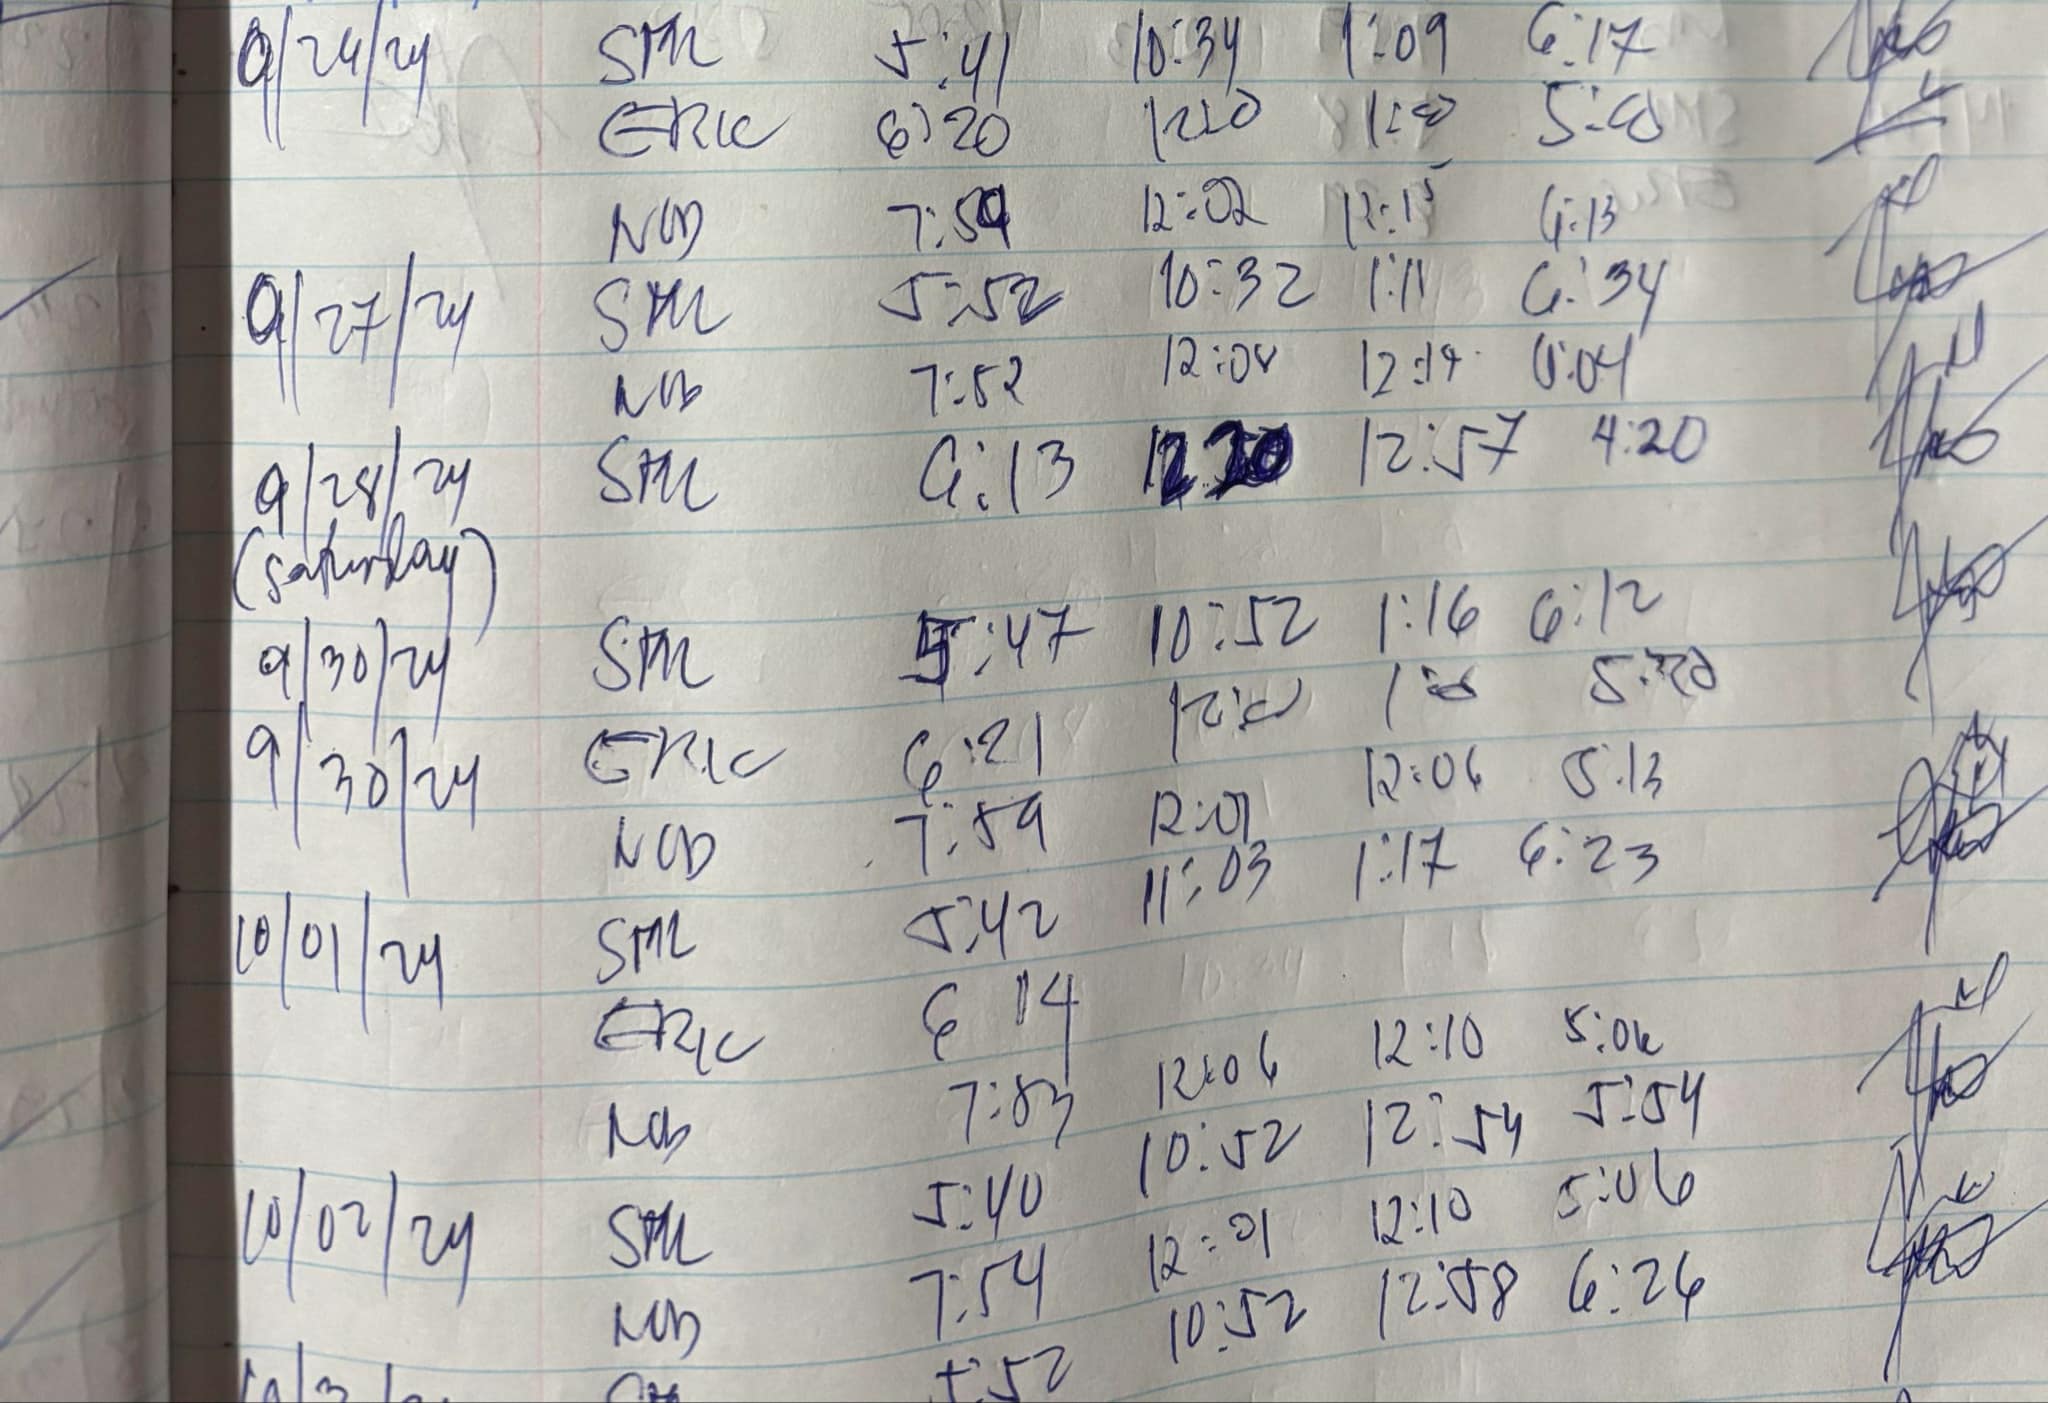 9/24/24 SML 5:41 10:34 1:09 6:17
ERIC 6:20 12:0 5:00
NOB 7:59 12:02 12:15 6:13
9/27/24 SML 5:52 10:32 1:11 6:34
NOB 7:52 12:08 12:14 6:04
9/28/24 SML 6:13 1220 12:57 4:20
(Saturday)
9/30/24 SML 5:47 10:52 1:16 6:12
9/30/24 ERIC 6:21 5:20
NOB 7:59 12:01 12:06 5:13
10/01/24 SML 5:42 11:03 1:17 6:23
ERIC 6 14
NOB 7:53 12:06 12:10 5:06
10/02/24 SML 5:40 10:52 12:54 5:54
NOB 7:54 12:01 12:10 5:06
5:52 10:52 12:58 6:26